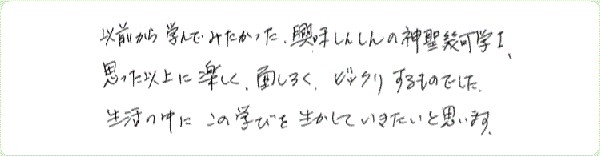 以前から学んでみたかった、興味しんしんの神聖幾何学I、
思った以上に楽しく、面しろく、ビックリするものでした。
生活の中にこの学びを生かしていきたいと思います。